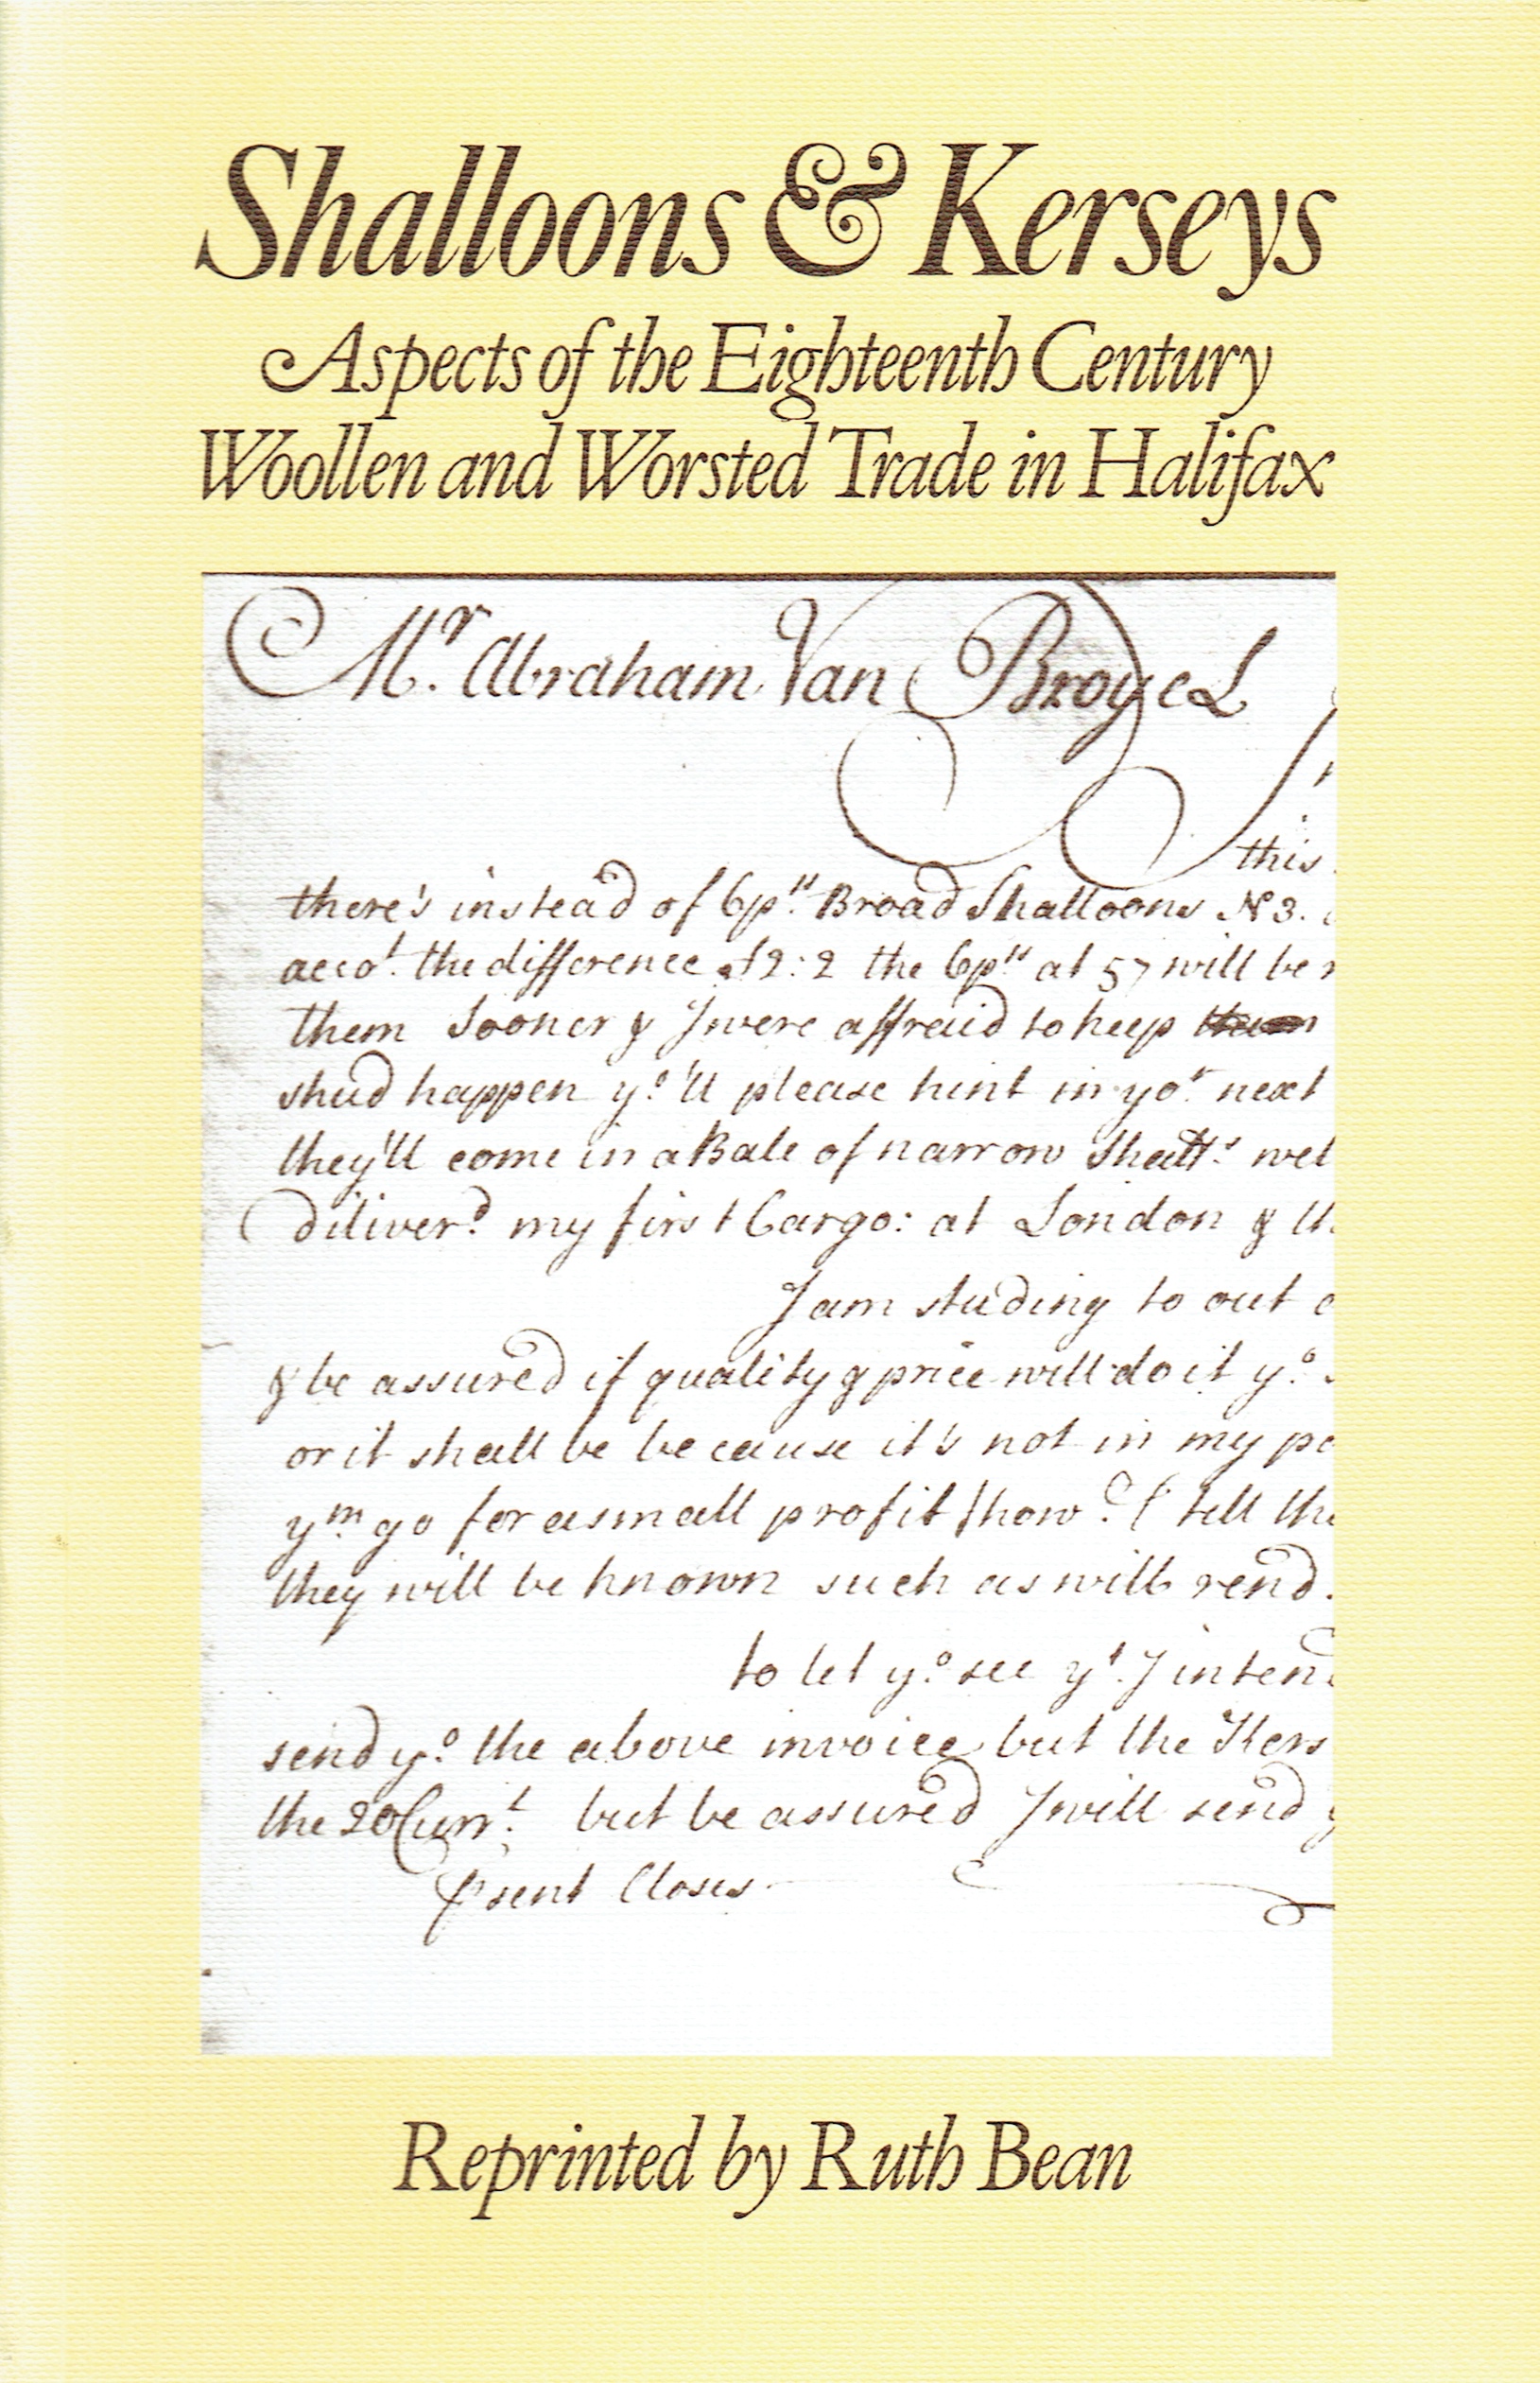 Shalloons & Kerseys
Aspects of the Eighteenth Century
Woollen and Worsted Trade in Halifax
Mr. Abraham Van Broyel
this
there's instead of 6ps. Broad Shalloons No 3.
acco.t the difference £2:2 the 6ps at 57 will be
them Sooner & J were affraid to keep
shud happen yo.'ll please hint in yor. next
they'll come in a Bale of narrow Shall.s
diliver.d my first Cargo: at London &
J am studing to out
& be assured if quality & price will do it yo.
or it shall be because it's not in my
ym. go for a small profit how tell
they will be known such as will
to let yo. see yt. J
send yo. the above invoice but the Kers
the 20 Curr.t but be assured J will send
Psent Closes
Reprinted by Ruth Bean